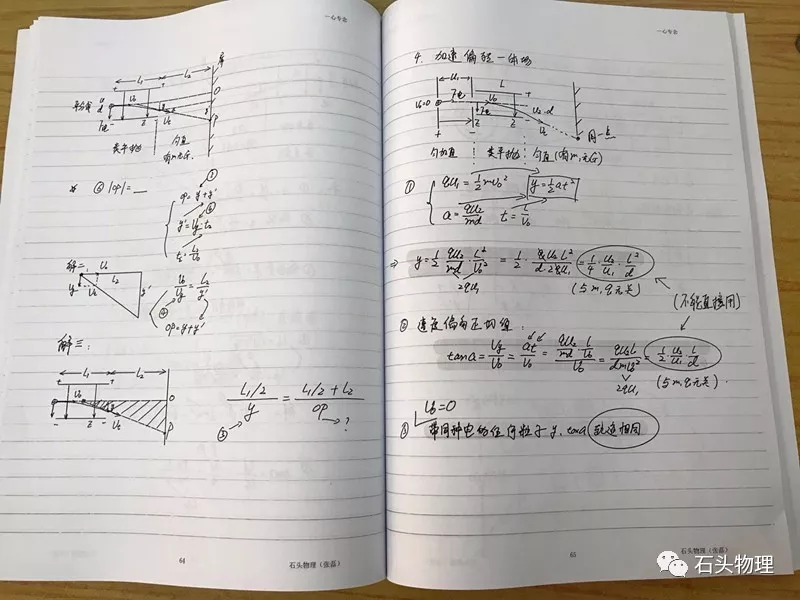 一心金志
L₁ L₂ 屏
U₂
类平抛 匀直
③ |op|=__
① op=y+y'
② y'=Vy·t₂
t₂=L₂/V₀
解二、
V₀/Vy=L₂/y'
op=y+y'
解三:
L₁ L₂
(L₁/2)/y=(L₁/2+L₂)/op
③ ?
64
石头物理(张磊)
一心金志
4. 加速偏转一体场
U₁ L
V₀=0
同一点
匀加直 类平抛 匀直(有m,无G)
① qU₁=½mV₀² y=½at²
a=qU₂/md t=L/V₀
⇒ y=½·qU₂/md·L²/V₀²=½·qU₂L²/d·2qU₁=¼·U₂/U₁·L²/d
2qU₁ (与m,q无关) (不能直接用)
② 速度偏角正切值:
tanα=Vy/V₀=at/V₀=(qU₂/md·L/V₀)/V₀=qU₂L/dmV₀²=½·U₂/U₁·L/d
2qU₁ (与m,q无关).
V₀=0
③ 带同种电的任何粒子y、tanα 轨迹相同
65
石头物理(张磊)
石头物理